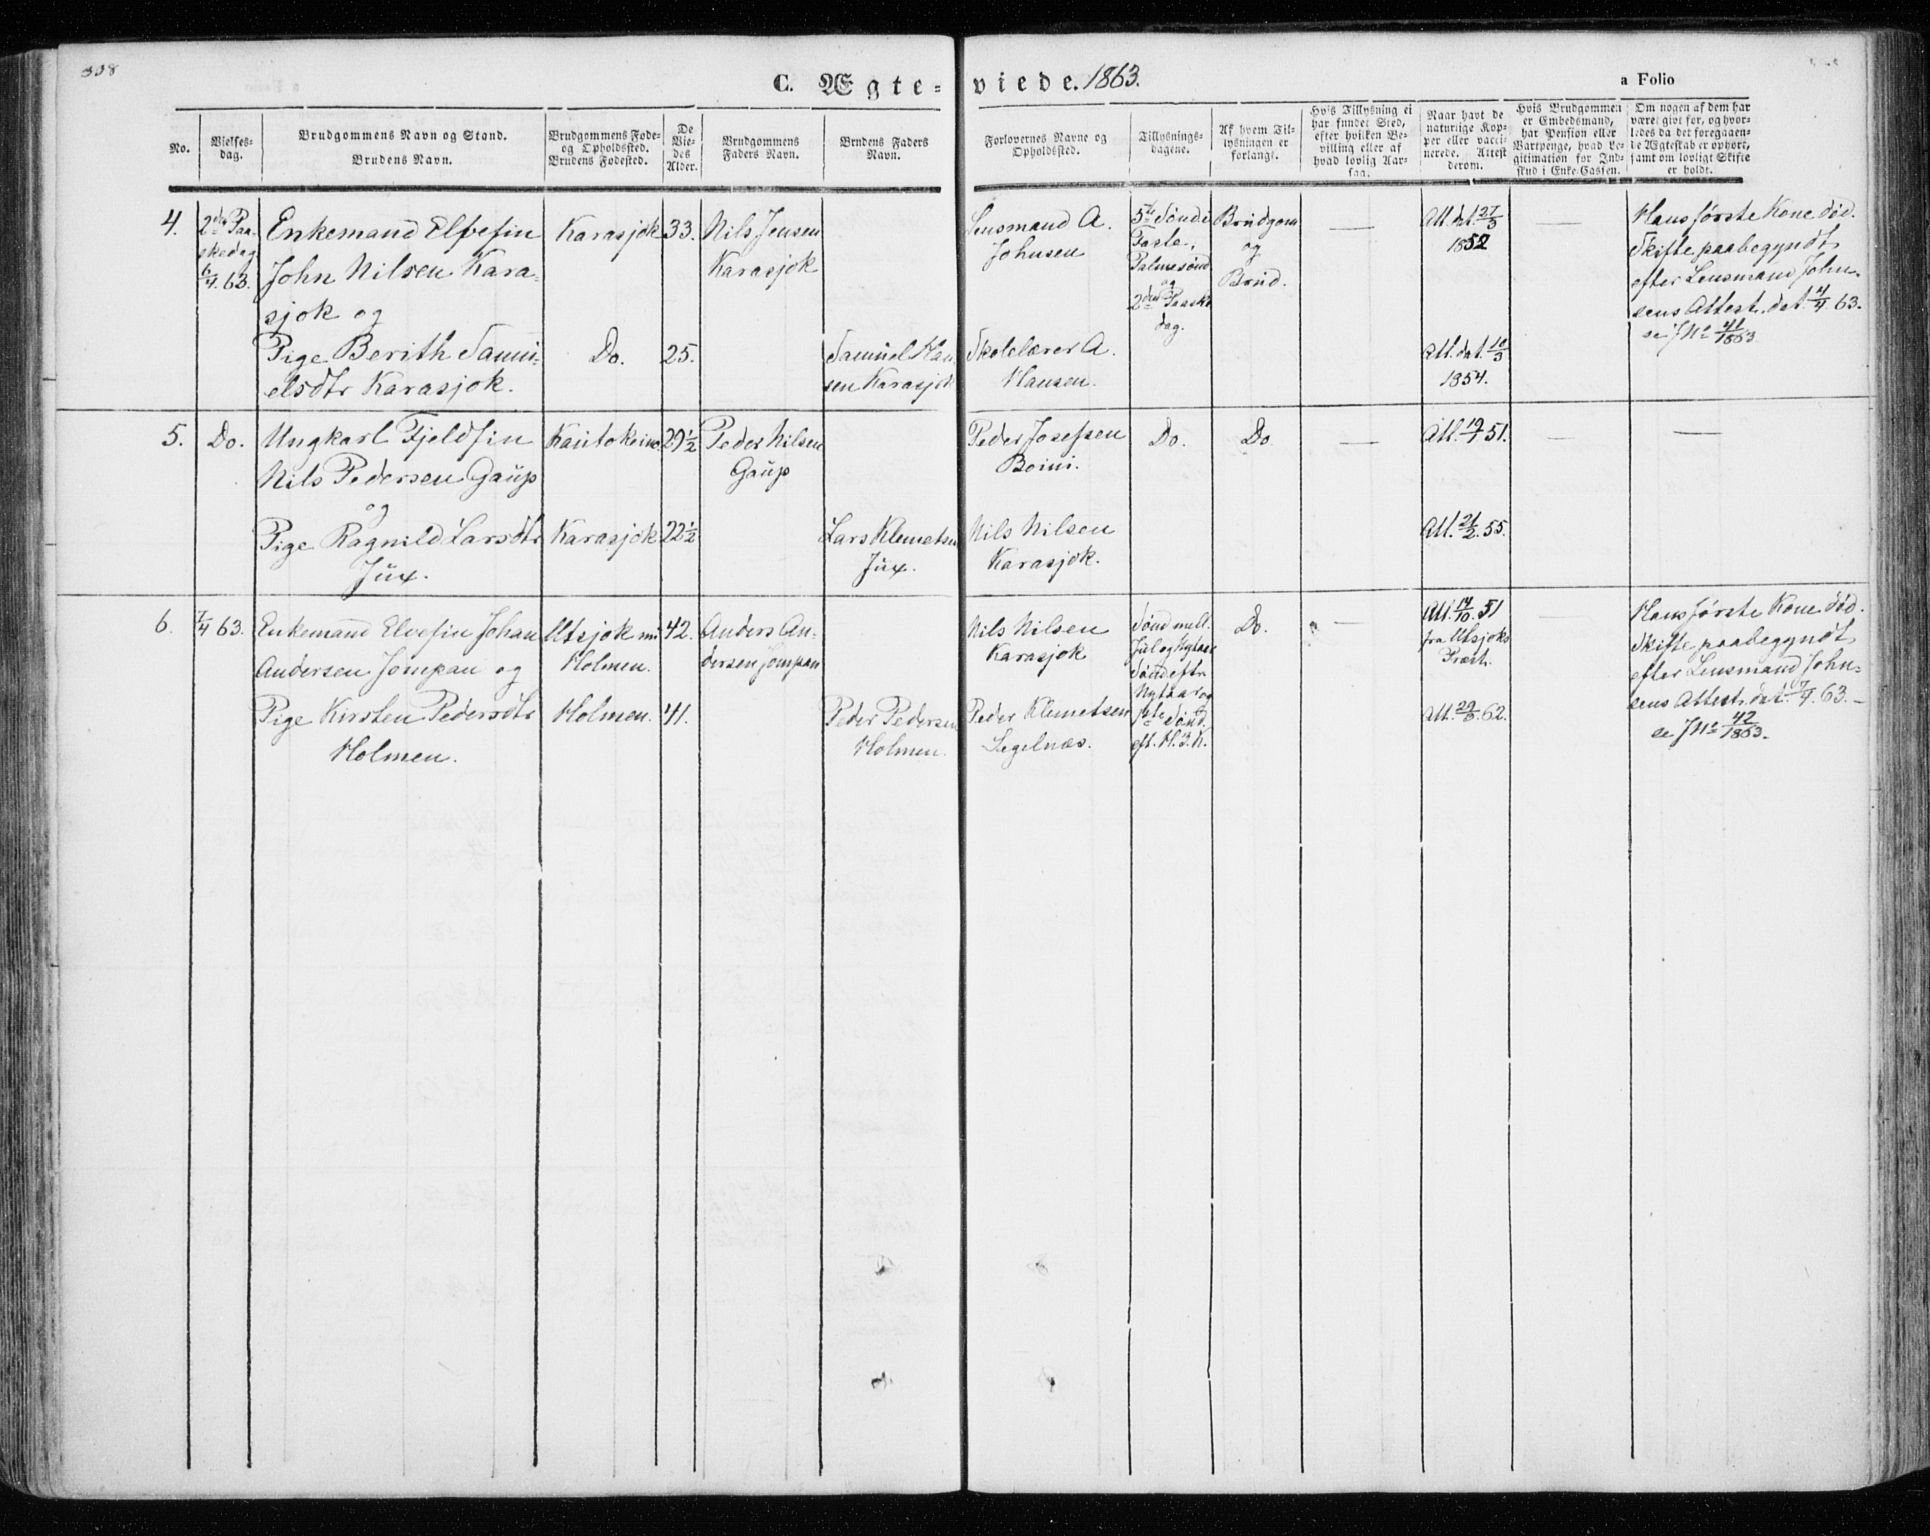 338
C. Ægte-viede. 1863.
a Folio
No.
Vielses-
dag.
Brudgommens Navn og Stand.
Brudens Navn.
Brudgommens Føde-
og Opholdssted.
Brudens Fødested.
De
Vie-
des
Alder.
Brudgommens
Faders Navn.
Brudens Faders
Navn.
Forlovernes Navne og
Opholdssted.
Tillysnings-
dagene.
Af hvem Til-
lysningen er
forlangt.
Hvis Tillysning ei
har fundet Sted,
efter hvilken Be-
villing eller af
hvad lovlig Aar-
sag.
Naar havt de
naturlige Kop-
per eller vacci-
nerede. Attest
derom.
Hvis Brudgommen
er Embedsmand,
har Pension eller
Vartpenge, hvad Le-
gitimation for Ind-
skud i Enke-Cassen.
Om nogen af dem har
været givt før, og hvor-
ledes da det foregaaen-
de Ægteskab er ophørt,
samt om lovligt Skifte
er holdt.
4.
2den Paa-
skedag
6/4 63.
Enkemand Elvefin
John Nilsen Kara-
sjok og
Pige Berith Samu-
elsdtr Karasjok.
Karasjok
Do.
33.
25.
Nils Jensen
Karasjok
Samuel Han-
sen Karasjok
Lensmand A.
Johnsen
Skolelærer A.
Hansen.
5te Sønd i
Faste,
Palmesønd
og
2den Paaske
dag.
Brudgom
og
Brud.
—
Att. dat. 27/3
1852
Att. dat. 10/3
1854.
—
Hans første Kone død.
Skifte paabegyndt
efter Lensmand John-
sens Attest. dat. 4/4 63.
se J No 41/1863
5.
Do.
Ungkarl Fjeldfin
Nils Pedersen Gaup
og
Pige Ragnild Larsdtr
Jux.
Kautokeino
Karasjok
29 1/2
22 1/2
Peder Nilsen
Gaup
Lars Klemetsen
Jux.
Peder Josefsen
Boini.
Nils Nilsen
Karasjok.
Do.
Do.
—
Att. 19/7 51.
Att. 21/2 55.
—
—
6.
7/4 63.
Enkemand Elvefin Johan
Andersen Jompan og
Pige Kirsten Pedersdtr
Holmen.
Utsjok nu
Holmen.
Holmen.
42.
41.
Anders An-
dersen Jompan
Peder Pedersen
Holmen.
Nils Nilsen
Karasjok
Peder Klemetsen
Segelnæs.
Sønd mell.
Jul og Nytaar
Sønd eftr
Nytaar og
1ste Sønd
eft. H. 3. K.
Do.
—
Att. 14/10 51
fra Utsjoks
Præst.
Att. 29/5 62.
—
Hans første Kone død.
Skifte paabegyndt
efter Lensmand John-
sens Attest. dat. 17/4 63.–
se J No 42/1863.